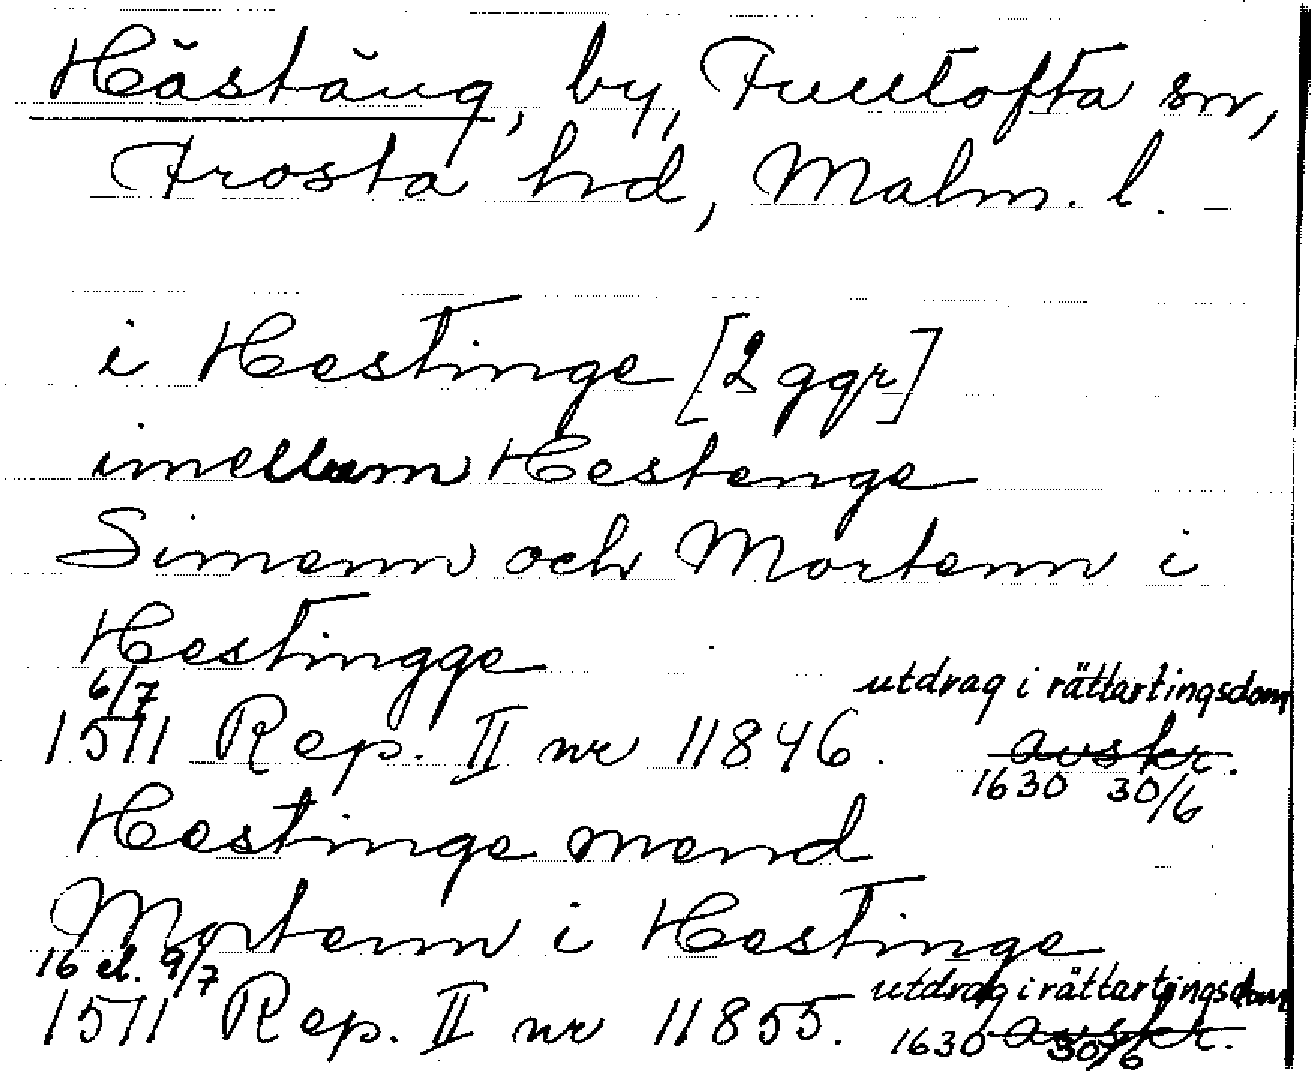 Hästäng, by, Fultofta sn,
Frosta hd, Malm. l.
i Hestinge [2 ggr]
imellum Hestenge
Simenn och Mortenn i
Hestingge
6/7 utdrag i rättartingsdom
1571 Rep. II nr 11846. avskr.
1630 30/6
Hestinge mend
Mortenn i Hestinge
16 el. 9/7 utdrag i rättartingsdom
1571 Rep. II nr 11855. avskr.
1630 30/6